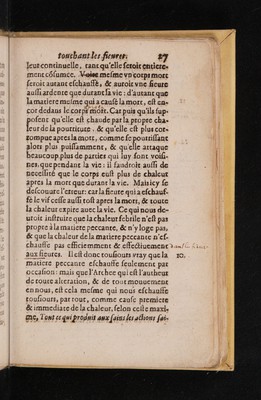 touchant les fieures. 27
leur continuelle, tant qu'elle seroit entiere-
ment cõsumee. Voire mesme vn corps mort
seroit autant eschauffé, & auroit vne fieure
aussi ardente que durant sa vie: d'autant que
la matiere mesme qui a causé la mort, est en-
cor dedans le corps mort. Car puis qu'ils sup-
posent qu'elle est chaude par la propre cha-
leur de la pourriture, & qu'elle est plus cor-
rompue apres la mort, comme se pourrissant
alors plus puissamment, & qu'elle attaque
beaucoup plus de parties qui luy sont voisi-
nes que pendant la vie: il faudroit aussi de
necessité que le corps eust plus de chaleur
apres la mort que durant la vie. Mais icy se
descouure l'erreur: car la fieure qui a eschauf-
fé le vif cesse aussi tost apres la mort, & toute
la chaleur expire auec la vie. Ce qui nous de-
uroit instruire que la chaleur febrile n'est pas
propre à la matiere peccante, & n'y loge pas,
& que la chaleur de la matiere peccante n'es-
chauffe pas efficiemment & effectiuement
aux fieures. Il est donc tousiours vray que la
10.
matiere peccante eschauffe seulement par
occasion: mais que l'Archee qui est l'autheur
de toute alteration, & de tout mouuement
en nous, est cela mesme qui nous eschauffe
tousiours, par tout, comme cause premiere
& immediate de la chaleur, selon ceste maxi-
me, Tout ce qui produit aux sains les actions sai-